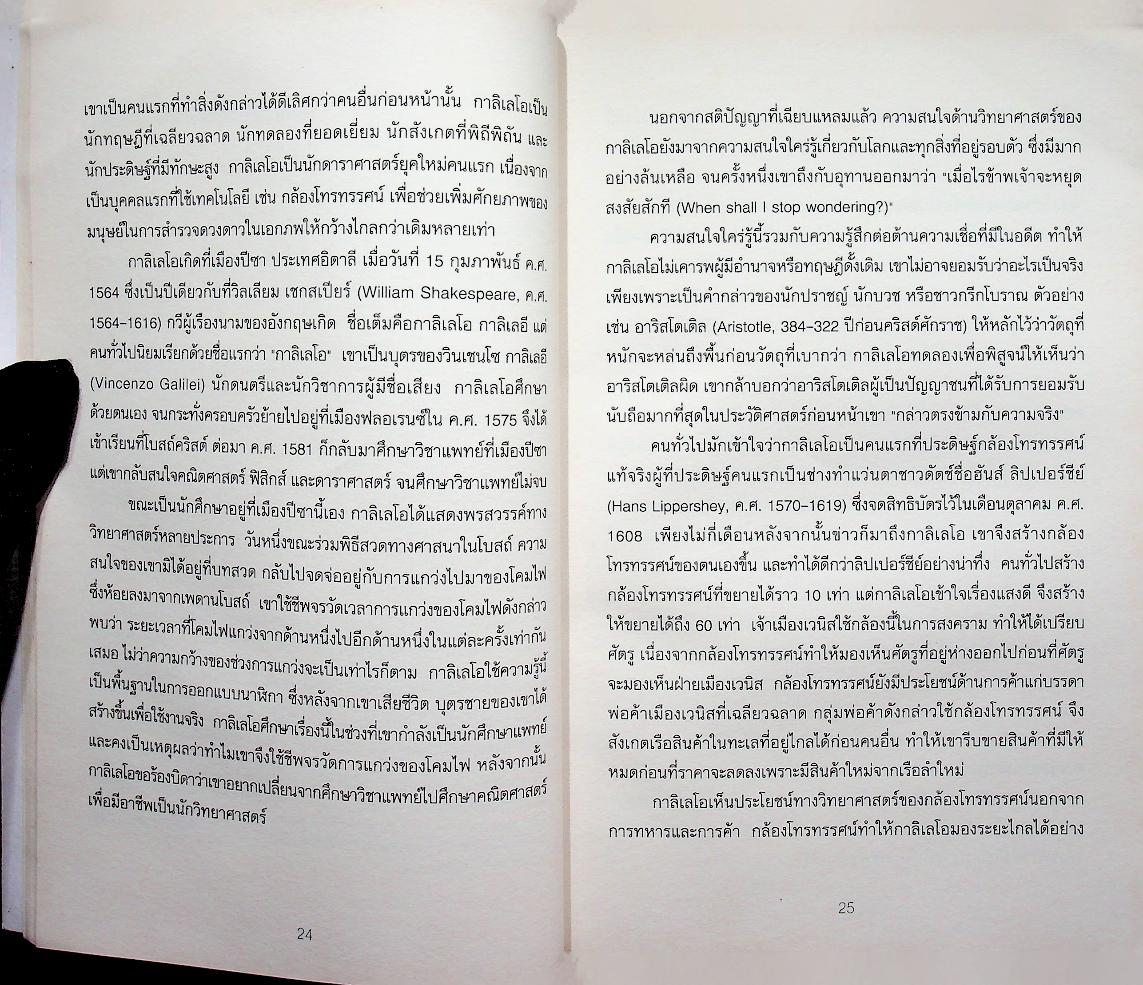 เขาเป็นคนแรกที่ทำสิ่งดังกล่าวได้ดีเลิศกว่าคนอื่นก่อนหน้านั้น กาลิเลโอเป็น
นักทฤษฎีที่เฉลียวฉลาด นักทดลองที่ยอดเยี่ยม นักสังเกตที่พิถีพิถัน และ
นักประดิษฐ์ที่มีทักษะสูง กาลิเลโอเป็นนักดาราศาสตร์ยุคใหม่คนแรก เนื่องจาก
เป็นบุคคลแรกที่ใช้เทคโนโลยี เช่น กล้องโทรทรรศน์ เพื่อช่วยเพิ่มศักยภาพของ
มนุษย์ในการสำรวจดวงดาวในเอกภพให้กว้างไกลกว่าเดิมหลายเท่า
กาลิเลโอเกิดที่เมืองปีซา ประเทศอิตาลี เมื่อวันที่ 15 กุมภาพันธ์ ค.ศ.
1564 ซึ่งเป็นปีเดียวกับที่วิลเลียม เชกสเปียร์ (William Shakespeare, ค.ศ.
1564-1616) กวีผู้เรืองนามของอังกฤษเกิด ชื่อเต็มคือกาลิเลโอ กาลิเลอี แต่
คนทั่วไปนิยมเรียกด้วยชื่อแรกว่า "กาลิเลโอ" เขาเป็นบุตรของวินเชนโซ กาลิเลอี
(Vincenzo Galilei) นักดนตรีและนักวิชาการผู้มีชื่อเสียง กาลิเลโอศึกษา
ด้วยตนเอง จนกระทั่งครอบครัวย้ายไปอยู่ที่เมืองฟลอเรนซ์ใน ค.ศ. 1575 จึงได้
เข้าเรียนที่โบสถ์คริสต์ ต่อมา ค.ศ. 1581 ก็กลับมาศึกษาวิชาแพทย์ที่เมืองปีซา
แต่เขากลับสนใจคณิตศาสตร์ ฟิสิกส์ และดาราศาสตร์ จนศึกษาวิชาแพทย์ไม่จบ
ขณะเป็นนักศึกษาอยู่ที่เมืองปีซานี้เอง กาลิเลโอได้แสดงพรสวรรค์ทาง
วิทยาศาสตร์หลายประการ วันหนึ่งขณะร่วมพิธีสวดทางศาสนาในโบสถ์ ความ
สนใจของเขามิได้อยู่ที่บทสวด กลับไปจดจ่ออยู่กับการแกว่งไปมาของโคมไฟ
ซึ่งห้อยลงมาจากเพดานโบสถ์ เขาใช้ชีพจรวัดเวลาการแกว่งของโคมไฟดังกล่าว
พบว่า ระยะเวลาที่โคมไฟแกว่งจากด้านหนึ่งไปอีกด้านหนึ่งในแต่ละครั้งเท่ากัน
เสมอ ไม่ว่าความกว้างของช่วงการแกว่งจะเป็นเท่าไรก็ตาม กาลิเลโอใช้ความรู้นี้
เป็นพื้นฐานในการออกแบบนาฬิกา ซึ่งหลังจากเขาเสียชีวิต บุตรชายของเขาได้
สร้างขึ้นเพื่อใช้งานจริง กาลิเลโอศึกษาเรื่องนี้ในช่วงที่เขากำลังเป็นนักศึกษาแพทย์
และคงเป็นเหตุผลว่าทำไมเขาจึงใช้ชีพจรวัดการแกว่งของโคมไฟ หลังจากนั้น
กาลิเลโอขอร้องบิดาว่าเขาอยากเปลี่ยนจากศึกษาวิชาแพทย์ไปศึกษาคณิตศาสตร์
เพื่อมีอาชีพเป็นนักวิทยาศาสตร์
24
นอกจากสติปัญญาที่เฉียบแหลมแล้ว ความสนใจด้านวิทยาศาสตร์ของ
กาลิเลโอยังมาจากความสนใจใคร่รู้เกี่ยวกับโลกและทุกสิ่งที่อยู่รอบตัว ซึ่งมีมาก
อย่างล้นเหลือ จนครั้งหนึ่งเขาถึงกับอุทานออกมาว่า "เมื่อไรข้าพเจ้าจะหยุด
สงสัยสักที (When shall I stop wondering?)"
ความสนใจใคร่รู้นี้รวมกับความรู้สึกต่อต้านความเชื่อที่มีในอดีต ทำให้
กาลิเลโอไม่เคารพผู้มีอำนาจหรือทฤษฎีดั้งเดิม เขาไม่อาจยอมรับว่าอะไรเป็นจริง
เพียงเพราะเป็นคำกล่าวของนักปราชญ์ นักบวช หรือชาวกรีกโบราณ ตัวอย่าง
เช่น อาริสโตเติล (Aristotle, 384-322 ปีก่อนคริสต์ศักราช) ให้หลักไว้ว่าวัตถุที่
หนักจะหล่นถึงพื้นก่อนวัตถุที่เบากว่า กาลิเลโอทดลองเพื่อพิสูจน์ให้เห็นว่า
อาริสโตเติลผิด เขากล้าบอกว่าอาริสโตเติลผู้เป็นปัญญาชนที่ได้รับการยอมรับ
นับถือมากที่สุดในประวัติศาสตร์ก่อนหน้าเขา "กล่าวตรงข้ามกับความจริง"
คนทั่วไปมักเข้าใจว่ากาลิเลโอเป็นคนแรกที่ประดิษฐ์กล้องโทรทรรศน์
แท้จริงผู้ที่ประดิษฐ์คนแรกเป็นช่างทำแว่นตาชาวดัตช์ชื่อฮันส์ ลิปเปอร์ชีย์
(Hans Lippershey, ค.ศ. 1570-1619) ซึ่งจดสิทธิบัตรไว้ในเดือนตุลาคม ค.ศ.
1608 เพียงไม่กี่เดือนหลังจากนั้นข่าวก็มาถึงกาลิเลโอ เขาจึงสร้างกล้อง
โทรทรรศน์ของตนเองขึ้น และทำได้ดีกว่าลิปเปอร์ชีย์อย่างน่าทึ่ง คนทั่วไปสร้าง
กล้องโทรทรรศน์ที่ขยายได้ราว 10 เท่า แต่กาลิเลโอเข้าใจเรื่องแสงดี จึงสร้าง
ให้ขยายได้ถึง 60 เท่า เจ้าเมืองเวนิสใช้กล้องนี้ในการสงคราม ทำให้ได้เปรียบ
ศัตรู เนื่องจากกล้องโทรทรรศน์ทำให้มองเห็นศัตรูที่อยู่ห่างออกไปก่อนที่ศัตรู
จะมองเห็นฝ่ายเมืองเวนิส กล้องโทรทรรศน์ยังมีประโยชน์ด้านการค้าแก่บรรดา
พ่อค้าเมืองเวนิสที่เฉลียวฉลาด กลุ่มพ่อค้าดังกล่าวใช้กล้องโทรทรรศน์ จึง
สังเกตเรือสินค้าในทะเลที่อยู่ไกลได้ก่อนคนอื่น ทำให้เขารีบขายสินค้าที่มีให้
หมดก่อนที่ราคาจะลดลงเพราะมีสินค้าใหม่จากเรือลำใหม่
กาลิเลโอเห็นประโยชน์ทางวิทยาศาสตร์ของกล้องโทรทรรศน์นอกจาก
การทหารและการค้า กล้องโทรทรรศน์ทำให้กาลิเลโอมองระยะไกลได้อย่าง
25